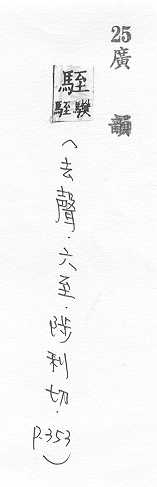 25廣韻
駤
(去聲.六至.陟利切.
p.353)